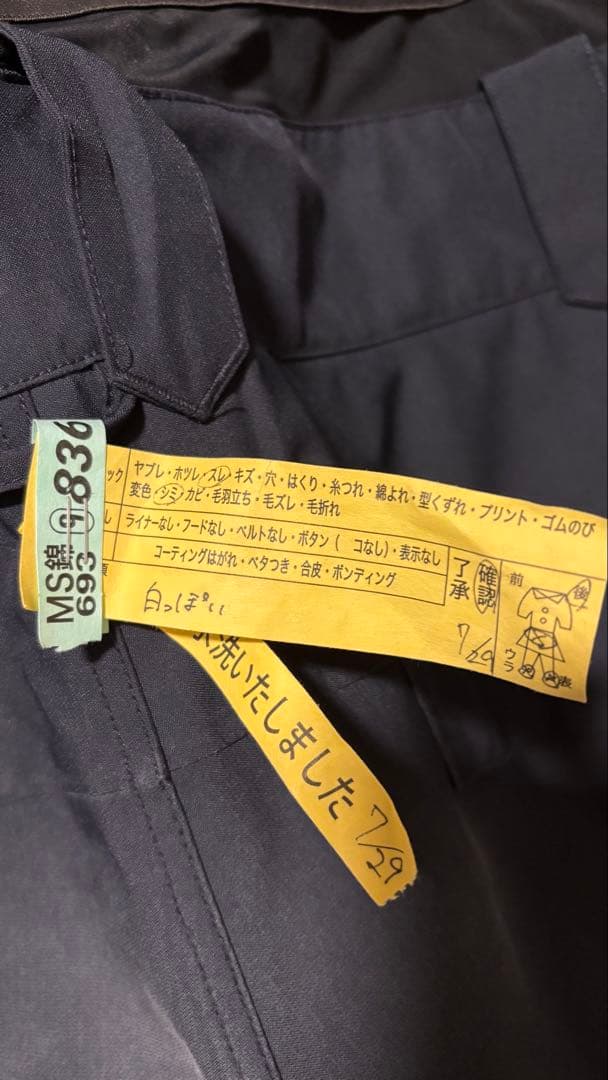 MS錦 ⑨ 836
693
ック
ヤブレ・ホツレ・スレ・キズ・穴・はくり・糸つれ・綿よれ・型くずれ・プリント・ゴムのび
変色・シミ・カビ・毛羽立ち・毛ズレ・毛折れ
し
ライナーなし・フードなし・ベルトなし・ボタン ( コなし)・表示なし
コーティングはがれ・ベタつき・合皮・ボンディング
白っぽい
了承
確認
7/29
前
後
ウラ
表
洗いたしました 7/29